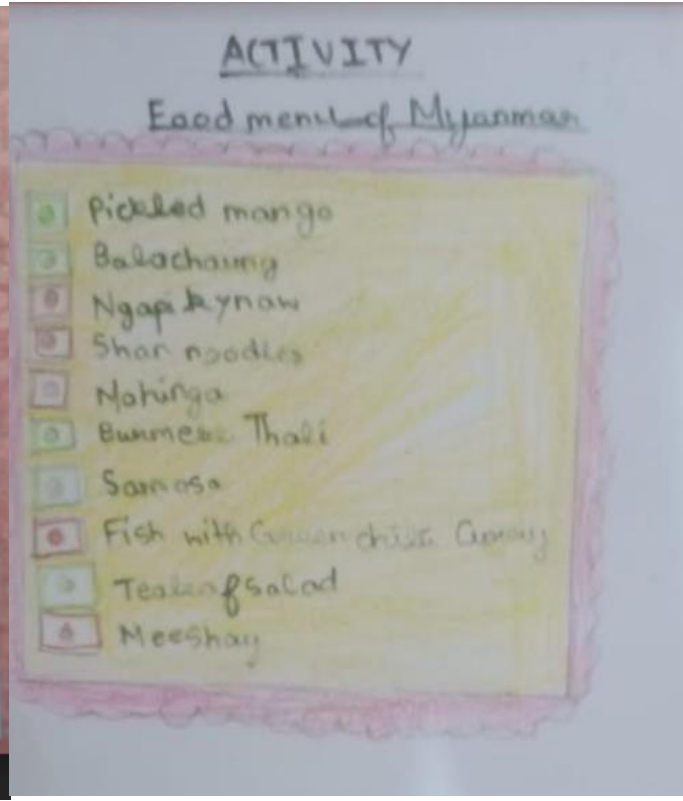 ACTIVITY
Food menu of Myanmar
Pickled mango
Balachaung
Ngapi kynaw
Shan noodles
Mohinga
Burmese Thali
Samosa
Fish with Green chilli Curry
Tealeaf salad
Meeshay